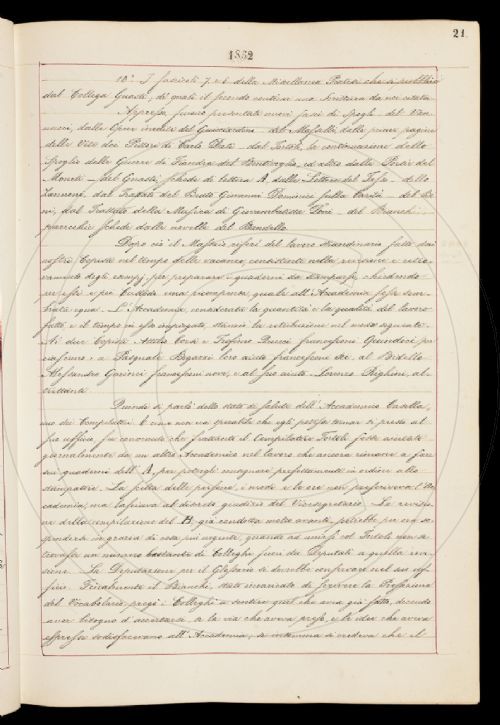 21
1852
10.° I fascicoli 7. e 8. della Miscellanea Pratese che si pubblica
dal Collega Guasti, de' quali il secondo contiene una Scrittura da noi citata.
Appresso furono presentati nuovi fasci di Spogli dal Van-
nucci, dalle Opere inedite del Guicciardini - dal Masselli, dalle prime pagine
delle Vite dei Pittori di Carlo Dati - dal Tortoli, la continuazione dello
Spoglio delle Guerre di Fiandra del Bentivoglio, ed altro dalle Poesie del
Moneti - dal Guasti, schede di lettera A dalle Lettere del Tasso - dello
Zannoni, dal Trattato del Beato Giovanni Dominici sulla Carità - del Ca-
si, dal Trattato della Musica di Giovambatista Doni - dal Bianchi
parecchie schede dalle novelle del Bandello.
Dopo ciò il Massaio riferì del lavoro straordinario fatto dai
nostri Copisti nel tempo delle vacanze, consistente nella revisione e
degli esempj, per preparare i quaderni da stamparsi, chiedendo
per essi e pei Custodi una ricompensa, quale all'Accademia fosse sem-
brata equa. L'Accademia, considerata la quantità e la qualità del lavoro
fatto, e il tempo in esso impiegato, stanziò la retribuzione nel modo seguente.
Ai due Copisti Attilio Corsi e Francesconi Quindici per
ciascuno; a Pasquale loro aiuto francesconi dieci, al Bidello
Alessandro francesconi nove, e al suo aiuto Lorenzo Righini, al-
trettanti.
Quindi si parlò dello stato di salute dell'Accademico Casella,
uno dei Compilatori. E come non era sperabile che egli potesse tornar sì presto al
suo ufficio, fu convenuto che frattanto il Compilatore Tortoli fosse aiutato
giornalmente da un altro Accademico nel lavoro che ancora rimane a fare
sui quaderni dell'A, per potergli consegnare perfettamente in ordine allo
stampatore. La scelta delle persone, i modi e le ore non prescriveva l'Ac-
cademia, ma lasciava al discreto giudizio del Vicesegretario. La revisio-
ne della compilazione del B, già condotta molto avanti, potrebbe per ora so-
spendersi in grazia di cosa più urgente, quando ad unirsi col Tortoli non si
trovasse un numero bastante di Colleghi fuori dei Deputati a quella revi-
sione. La Deputazione per il Glossario si dovrebbe conservare nel suo uf-
ficio. Finalmente il Bianchi, stato incaricato di scrivere la Prefazione
del Vocabolario, pregò i Colleghi a sentire quel che avea già fatto, dicendo
aver bisogno d'accertarsi se la via che aveva preso, e le idee che aveva
espresse sodisfacevano all'Accademia; se insomma si credeva che il